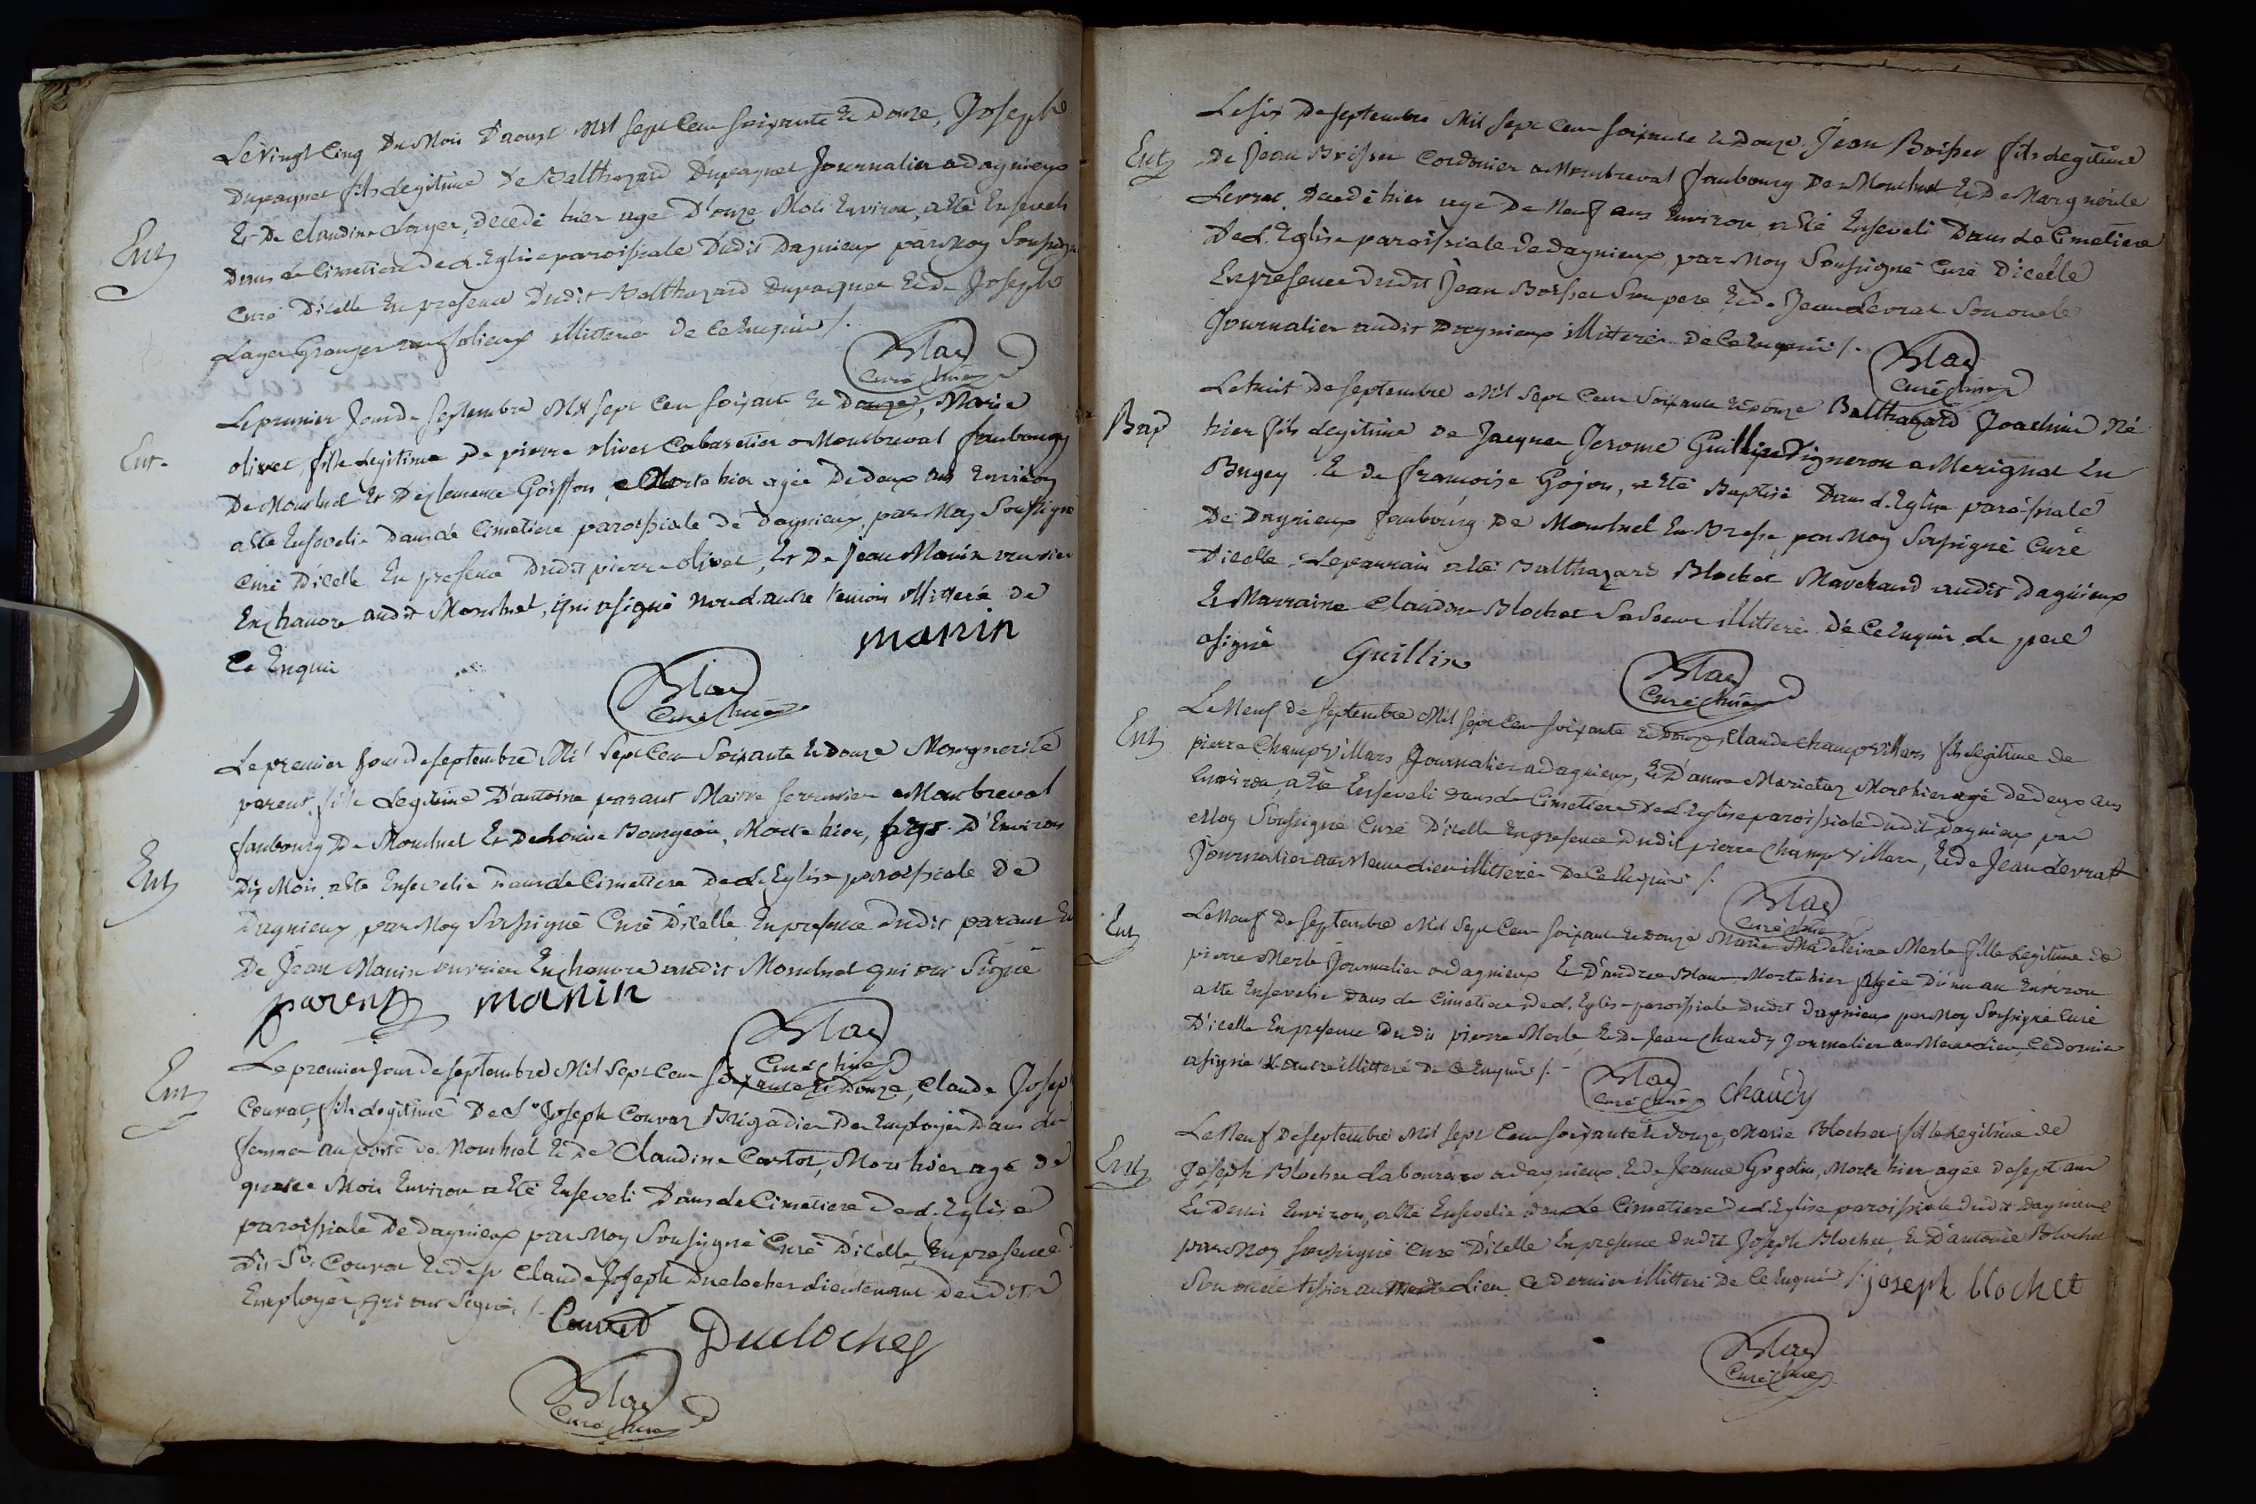 Ent
Le vingt Cinq Du Mois D'aoust Mil sept Cent soixante et Douze, Joseph
Dupaquet fils Legitime de Balthazard Dupaquet Journalier a dagnieux
Et De Claudine Layer, decedé hier agé D'onze Mois Environ, a été Enseveli
Dans le Cimetiere de L'Eglise paroissiale Dudit Dagnieux par Moy Soussigné
Curé D'icelle En presence Dudit Balthazard Dupaquet Et De Joseph
Layer Granger illitteré de Ce Enquis /.
Blac
Curé
Ent
Le premier Jour de septembre Mil sept Cent soixante Et Douze, Marie
olivet, fille Legitime De pierre olivet Cabaretier a Montbreval faubourg
De Montluel Et De Clemence Goiffon, Morte hier agée De deux ans Environ
a été Ensevelie dans le Cimetiere paroissiale de Dagnieux, par Moy Soussigné
Curé D'icelle En presence Dudit pierre olivet, Et De Jean Manin ouvrier
En chanvre audit Montluel, qui a signé non L'autre temoin illitteré de
Ce Enquis
manin
Blac
Curé
Ent
Le premier Jour De septembre Mil Sept Cent Soixante Et Douze Marguerite
parent, fille Legitime D'antoine parant Maitre serrurier a Montbreval
faubourg De Montluel Et De Louise Bourgeois, Morte hier, agée D'Environ
Dix Mois a été Ensevelie Dans le Cimetiere De L'Eglise paroissiale De
Dagnieux, par Moy Soussigné Curé D'icelle En presence Dudit parant Et
De Jean Manin ouvrier En chanvre audit Montluel qui ont Signé
parent manin
Blac
Curé
Ent
Le premier Jour De septembre Mil Sept Cent Soixante Et Douze, Claude Joseph
Couvat, fils Legitime De Sr Joseph Couvat Brigadier Des Employés Dans les
fermes au poste de Montluel Et De Claudine Costot, Mort hier agé De
quatre Mois Environ a été Enseveli Dans le Cimetiere De L'Eglise
paroissiale De Dagnieux par Moy Soussigné Curé D'icelle, En presence
Dit Sr Couvat Et de Sr Claude Joseph Duclocher Lieutenant Desdits
Employés, qui ont signé, /.
Couvat Duclocher
Blac
Curé
Ent
Le six De septembre Mil sept Cent soixante Et Douze Jean Boisset fils Legitime
De Jean Boisset Cordonier a Montbreval faubourg De Montluel Et De Marguerite
Levrat, Decedé hier agé De Neuf ans Environ a été Enseveli Dans Le Cimetiere
De L'Eglise paroissiale de dagnieux, par Moy Soussigné Curé D'icelle
En presence Dudit Jean Boisset Son pere, Et De Jean Levrat Son oncle
Journalier audit Dagnieux illitterés de Ce Enquis /.
Blac
Curé
Bap
Le huit De septembre Mil Sept Cent Soixante Et Douze Balthazard Joachim Né
hier fils Legitime De Jacques Jerome Guillin Vigneron a Merignat En
Bugey Et De francoise Gojon, a été Baptisé Dans L'Eglise paroissiale
De Dagnieux faubourg De Montluel En Bresse, par Moy Soussigné Curé
D'icelle. Le parrain a été Balthazard Blochet Marchand audit Dagnieux
Et Marraine Claudine Blochet Sa Soeur illitterés de Ce Enquis Le pere
a signé Guillin
Blac
Curé
Ent
Le Neuf De septembre Mil sept Cent soixante Et Douze, Claude Champvillars fils Legitime De
pierre Champvillars Journalier a dagnieux, Et D'anne Mort hier agé De deux ans
Environ, a été Enseveli Dans le Cimetiere De L'Eglise paroissiale Dudit Dagnieux par
Moy Soussigné Curé D'icelle En presence Dudit pierre Champvillars, Et De Jean Levrat
Journalier au Meme Lieu illitterés De Ce Enquis /.
Blac
Curé
Ent
Le Neuf De septembre Mil Sept Cent soixante Et Douze Marie Madeleine Merle fille Legitime de
pierre Merle Journalier a dagnieux Et D'andrée Blanc Morte hier agée D'un an Environ
a été Ensevelie Dans Le Cimetiere De L'Eglise paroissiale Dudit Dagnieux par Moy Soussigné Curé
D'icelle En presence Dudit pierre Merle, Et De Jean Chaudy Journalier au Meme lieu, Ce dernier
a signé L'autre illitteré De Ce Enquis /.
Blac
Curé
Chaudy
Ent
Le Neuf De septembre Mil sept Cent soixante Et Douze, Marie Blochet fille Legitime de
Joseph Blochet Laboureur a dagnieux Et De Jeanne Gogolin, Morte hier agée De sept ans
Et Demi Environ, a été Ensevelie Dans Le Cimetiere De L'Eglise paroissiale Dudit Dagnieux
par Moy soussigné Curé D'icelle En presence Dudit Joseph Blochet, Et D'antoine Blochet
Son oncle tissier au Meme Lieu, Ce dernier illitteré De Ce Enquis /. joseph blochet
Blac
Curé